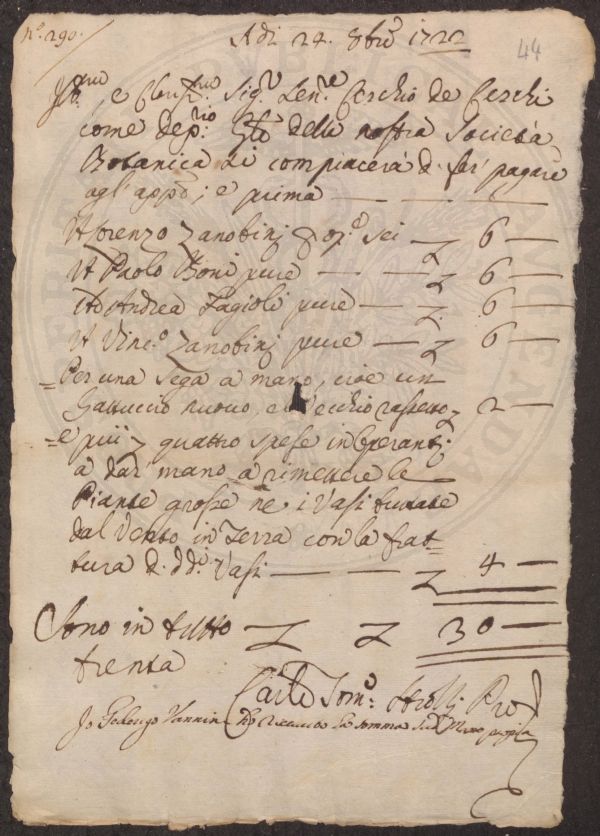 N.º 290.
Adi 24. 8bre 1722
44
Ill.mo e Clariss.mo Sig.r Sen.re Cerchio de Cerchi
come dep.rio della nostra Società
Botanica si compiacerà di far' pagare
agl'app.di; e prima
A Lorenzo Zanobinj p op.e sei — 6 —
A Paolo Boni pure — 6 —
Ad Andrea Fagioli pure — 6 —
A Vinc.o Zanobinj pure — 6 —
=Per una sega a mano, cioè un
Gattuccio nuovo, e vecchio rassetto — 2 —
=e più quattro spese in Operantj
a dar' mano a rimettere le
Piante grosse ne i Vasi buttate
dal Vento in Terra con la frat=
tura di dd.i Vasi — 4 —
Sono in tutto 30 —
trenta
Carlo Tom.o Strozzj
Io Vannin ho ricevuto la somma Mano propria